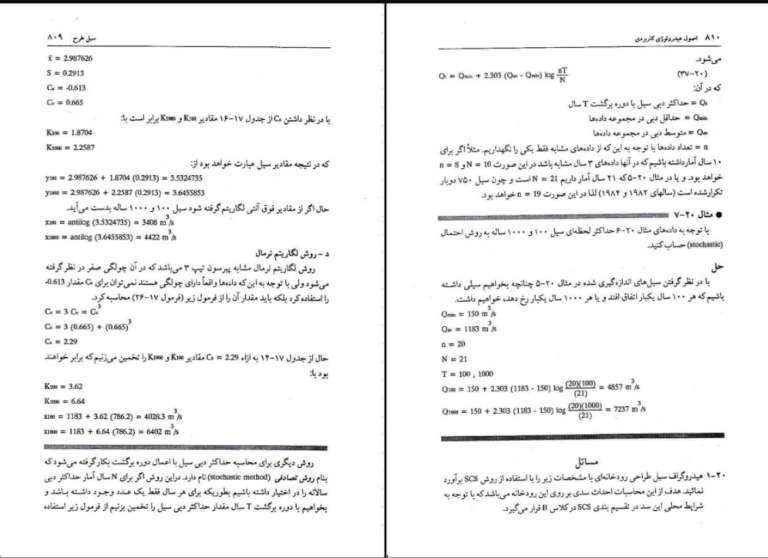 سیل طرح ۸۰۹
x̄ = 2.987626
S = 0.2913
Cs = -0.613
Cv = 0.665
با در نظر داشتن Cs از جدول ۱۷-۱۶ مقادیر K100 و K1000 برابر است با:
K100 = 1.8704
K1000 = 2.2587
که در نتیجه مقادیر سیل عبارت خواهد بود از:
y100 = 2.987626 + 1.8704 (0.2913) = 3.5324735
y1000 = 2.987626 + 2.2587 (0.2913) = 3.6455853
حال اگر از مقادیر فوق آنتی لگاریتم گرفته شود سیل ۱۰۰ و ۱۰۰۰ ساله بدست می‌آید.
x100 = antilog (3.5324735) = 3408 m³/s
x1000 = antilog (3.6455853) = 4422 m³/s
د - روش لگاریتم نرمال
روش لگاریتم نرمال مشابه پیرسون تیپ ۳ می‌باشد که در آن چولگی صفر در نظر گرفته
می‌شود ولی با توجه به این که داده‌ها واقعاً دارای چولگی هستند نمی‌توان برای Cs مقدار 0.613-
را استفاده کرد بلکه باید مقدار آن را از فرمول زیر (فرمول ۱۷-۲۶) محاسبه کرد.
Cs = 3 Cv + Cv³
Cs = 3 (0.665) + (0.665)³
Cs = 2.29
حال از جدول ۱۷-۱۴ به ازاء Cs = 2.29 مقادیر K100 و K1000 را تخمین می‌زنیم که برابر خواهند
بود با:
K100 = 3.62
K1000 = 6.64
x100 = 1183 + 3.62 (786.2) = 4028.3 m³/s
x1000 = 1183 + 6.64 (786.2) = 6402 m³/s
روش دیگری برای محاسبه حداکثر دبی سیل با اعمال دوره برگشت بکار گرفته می‌شود که
بنام روش تصادفی (stochastic method) نام دارد. دراین روش اگر برای N سال آمار حداکثر دبی
سالانه را در اختیار داشته باشیم بطوریکه برای هر سال فقط یک عدد وجود داشته باشد و
بخواهیم با دوره برگشت T سال مقدار حداکثر دبی سیل را تخمین بزنیم از فرمول زیر استفاده
۸۱۰ اصول هیدرولوژی کاربردی
می‌شود.
Qt = Qmin + 2.303 (Qav - Qmin) log nT/N (۲۰-۳۷)
که در آن:
Qt = حداکثر دبی سیل با دوره برگشت T سال
Qmin = حداقل دبی در مجموعه داده‌ها
Qav = متوسط دبی در مجموعه داده‌ها
n = تعداد داده‌ها با توجه به این که از داده‌های مشابه فقط یکی را نگهداریم. مثلاً اگر برای
۱۰ سال آمارداشته باشیم که در آنها داده‌های ۳ سال مشابه باشد در این صورت N = 10 و n = 8
خواهد بود. و یا در مثال ۲۰-۵ که ۲۱ سال آمار داریم N = 21 است و چون سیل ۷۵۰ دوبار
تکرارشده است (سالهای ۱۹۸۲ و ۱۹۸۴) لذا در این صورت n = 19 خواهد بود.
● مثال ۲۰-۷
با توجه به داده‌های مثال ۲۰-۶ حداکثر لحظه‌ای سیل ۱۰۰ و ۱۰۰۰ ساله به روش احتمال
(stochastic) حساب کنید.
حل
با در نظر گرفتن سیل‌های اندازه‌گیری شده در مثال ۲۰-۵ چنانچه بخواهیم سیلی داشته
باشیم که هر ۱۰۰ سال یکبار اتفاق افتد و یا هر ۱۰۰۰ سال یکبار رخ دهد، خواهیم داشت.
Qmin = 150 m³/s
Qav = 1183 m³/s
n = 20
N = 21
T = 100 , 1000
Q100 = 150 + 2.303 (1183 - 150) log (20)(100)/(21) = 4857 m³/s
Q1000 = 150 + 2.303 (1183 - 150) log (20)(1000)/(21) = 7237 m³/s
مسائل
۲۰-۱ هیدروگراف سیل طراحی رودخانه‌ای با مشخصات زیر را با استفاده از روش SCS برآورد
نمائید. هدف از این محاسبات احداث سدی بر روی این رودخانه می‌باشد که با توجه به
شرایط محلی این سد در تقسیم بندی SCS در کلاس B قرار می‌گیرد.